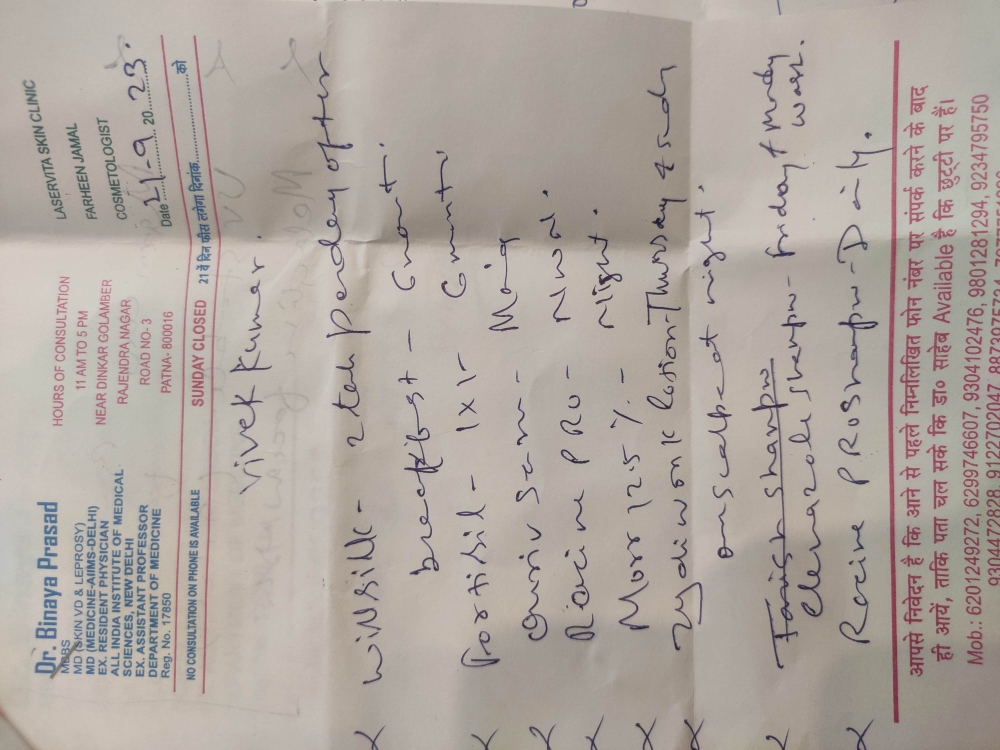 Dr. Binaya Prasad
MBBS
MD (SKIN VD & LEPROSY)
MD (MEDICINE-AIIMS-DELHI)
EX. RESIDENT PHYSICIAN
ALL INDIA INSTITUTE OF MEDICAL
SCIENCES, NEW DELHI
EX. ASSISTANT PROFESSOR
DEPARTMENT OF MEDICINE
Reg. No. 17850
HOURS OF CONSULTATION
11 AM TO 5 PM
NEAR DINKAR GOLAMBER
RAJENDRA NAGAR
ROAD NO- 3
PATNA- 800016
LASERVITA SKIN CLINIC
FARHEEN JAMAL
COSMETOLOGIST
Date 21-9 2023.
NO CONSULTATION ON PHONE IS AVAILABLE
SUNDAY CLOSED
21 वें दिन फीस लगेगा दिनांक....................को
Vivek Kumar.
2 tab per day after
breakfast - 6 mont.
1x1- 6 mont.
Morning
PRO - Noon.
Morr 12.5 % - Night.
Lotion-Thursday & Sunday
on scalp at night.
shampoo - friday & monday
wash.
PRO Shampoo - Daily.
आपसे निवेदन है कि आने से पहले निम्नलिखित फोन नंबर पर संपर्क करने के बाद
ही आयें, ताकि पता चल सके कि डा० साहेब Available है कि छुट्टी पर हैं।
Mob.: 6201249272, 6299746607, 9304102476, 9801281294, 9234795750
9304472828, 9122702047,